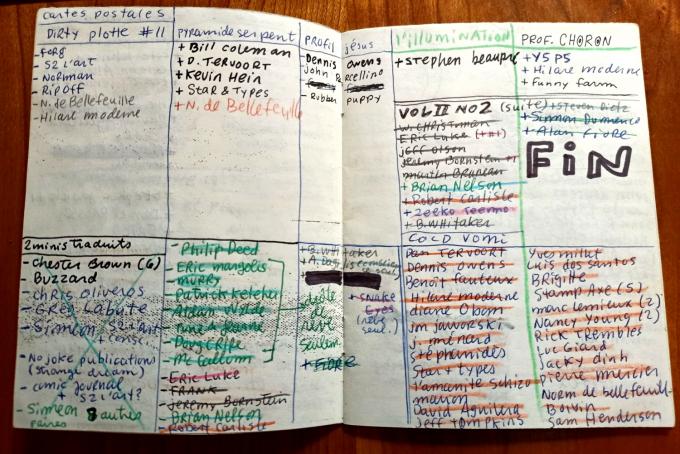 cartes postales
Dirty plotte #11
- Ferg
- S2 L'art
- Norman
- RipOff
- N. de Bellefeuille
- Hilare moderne
pyramide serpent
+ Bill coleman
+ D. TERVOORT
+ Kevin Hein
+ Star & Types
+ N. de Bellefeuille
profil jésus
- Dennis Owens
- John
- Rubber puppy
l'illumination
+ Stephen beaupré
PROF. CHORON
+ Y5 P5
+ Hilare moderne
+ Funny farm
VOL II NO2 (suite)
ERIC Luke (+n1)
jeff Olson
Jeremy Bornstein
martin Bruneau
+ Brian Nelson
+ Robert Carlisle
+ B. Whitaker
+ Steven Dietz
+ Simmon Dumenco
+ Alan Fiore
FiN
2 minis traduits
- Chester Brown (6)
- Buzzard
- chris oliveros
- GREG Labute
- Simeon S2 L'art
+ conse.
- No joke publications
(strange dream)
- comic journal
+ S2 L'art?
- Simeon 8 autres
paires
- Philip Deed
- ERIC margolis
- murry
- Patrick keleher
- Aldan Wilde
- Doug Cripe
- Mc Callumn
- ERIC Luke
- FRANK
- Jeremy Bornstein
- BRian NELSON
- Robert Carlisle
+ B. Whitaker
de
rêve
seulem.
+ FIORE
+ SNAKE
Eyes
(rêve
seul.)
COLD VOMI
Dan TERVOORT
Dennis owens
Benoît fauteux
Hilare moderne
diane Obom
jm jaworski
j. ménard
stéphumides
Star + types
l'amanite schizo
maron
David Aguilera
Jeff TOMPKINS
Yves millet
Luis dos santos
Brigitte
Stamp Axe (5)
marc lemieux (2)
Nancy Young (2)
Rick Trembles
Luc Giard
Jacky dinh
Pierre murcien
Norm de bellefeuill-
Boivin
Sam Henderson